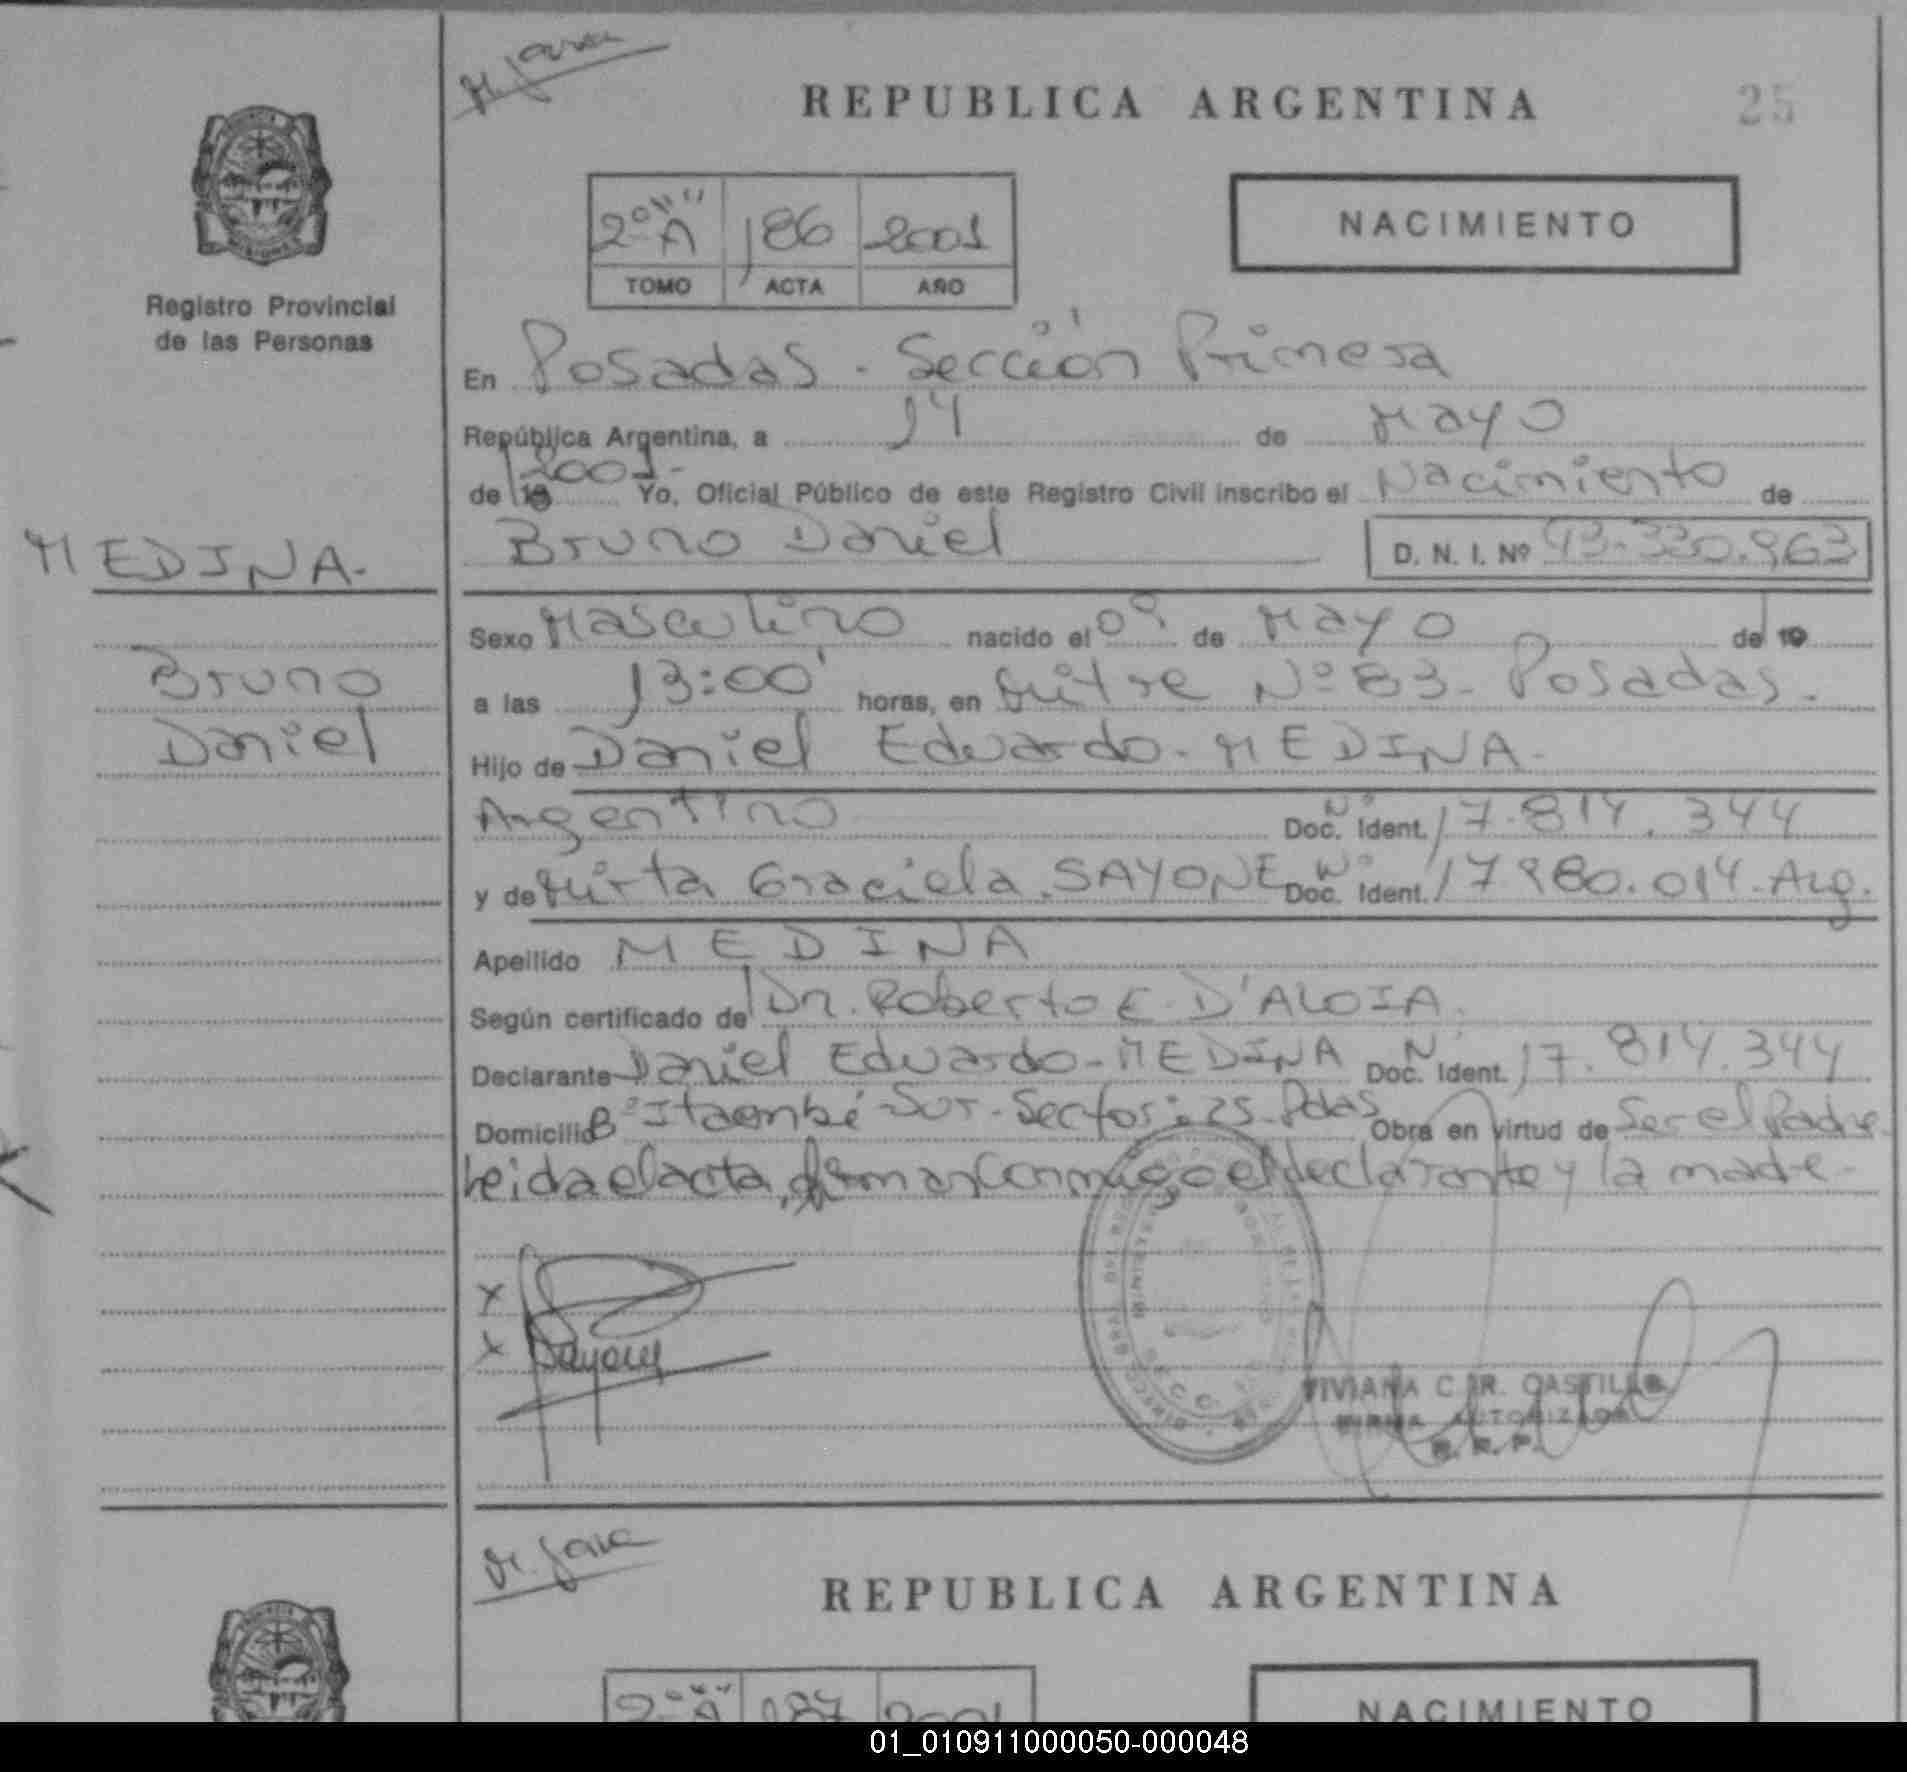 M. Jara
REPUBLICA ARGENTINA
25
2º "A" 186 2001
TOMO ACTA AÑO
NACIMIENTO
Registro Provincial
de las Personas
En Posadas - Sección Primera
República Argentina, a 14 de Mayo
de 19 2001.- Yo, Oficial Público de este Registro Civil inscribo el Nacimiento de
MEDINA.
Bruno Daniel D. N. I. Nº 43.330.963
Sexo Masculino nacido el 09 de Mayo de 19
Bruno
a las 13:00' horas, en Mitre Nº 83- Posadas.
Daniel
Hijo de Daniel Eduardo - MEDINA.
Argentino Doc. Nº Ident. 17.814.344
y de Mirta Graciela. SAYONE Doc. Nº Ident. 17.980.014.Arg.
Apellido MEDINA
Según certificado de Dr. Roberto E. D'ALOIA.
Declarante Daniel Eduardo - MEDINA Doc. Nº Ident. 17.814.344
Domicilio Bº Itaembé Sur - Sector: 25 - Pdas Obra en virtud de Ser el Padre.
Leida el acta, firman conmigo el declarante y la madre-
x
x Sayone
VIVIANA C. R. CASTILLO
FIRMA AUTORIZADA
R. P. P.
M. Jara
REPUBLICA ARGENTINA
2º "A" 187 2001
NACIMIENTO
01_010911000050-000048